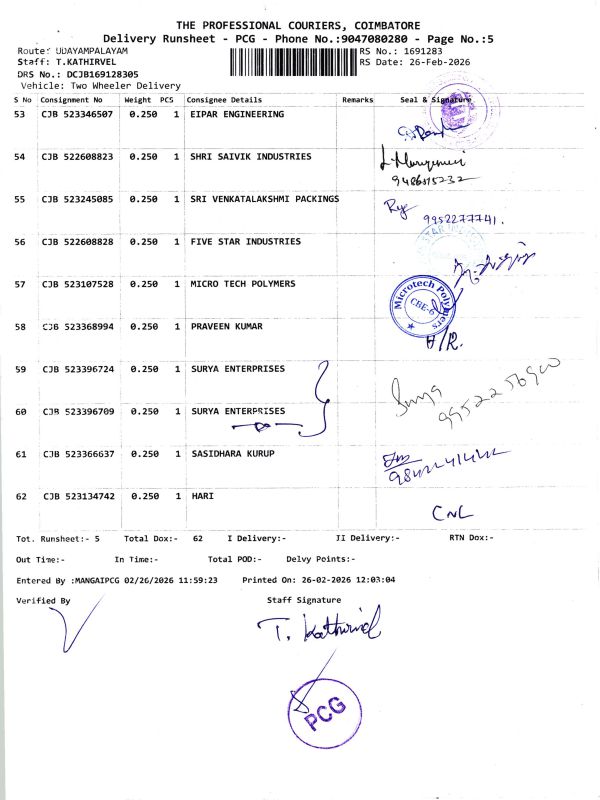 THE PROFESSIONAL COURIERS, COIMBATORE
Delivery Runsheet - PCG - Phone No.:9047080280 - Page No.:5
Route: UDAYAMPALAYAM RS No.: 1691283
Staff: T.KATHIRVEL RS Date: 26-Feb-2026
DRS No.: DCJB169128305
Vehicle: Two Wheeler Delivery
S No Consignment No Weight PCS Consignee Details Remarks Seal & Signature
53 CJB 523346507 0.250 1 EIPAR ENGINEERING
54 CJB 522608823 0.250 1 SHRI SAIVIK INDUSTRIES
55 CJB 523245085 0.250 1 SRI VENKATALAKSHMI PACKINGS
9952277741.
56 CJB 522608828 0.250 1 FIVE STAR INDUSTRIES
57 CJB 523107528 0.250 1 MICRO TECH POLYMERS
Microtech Polymers
CBE-6
58 CJB 523368994 0.250 1 PRAVEEN KUMAR
H/R.
59 CJB 523396724 0.250 1 SURYA ENTERPRISES
Surya
60 CJB 523396709 0.250 1 SURYA ENTERPRISES
61 CJB 523366637 0.250 1 SASIDHARA KURUP
62 CJB 523134742 0.250 1 HARI
CNL
Tot. Runsheet:- 5 Total Dox:- 62 I Delivery:- II Delivery:- RTN Dox:-
Out Time:- In Time:- Total POD:- Delvy Points:-
Entered By :MANGAIPCG 02/26/2026 11:59:23 Printed On: 26-02-2026 12:03:04
Verified By Staff Signature
T. Kathirvel
PCG